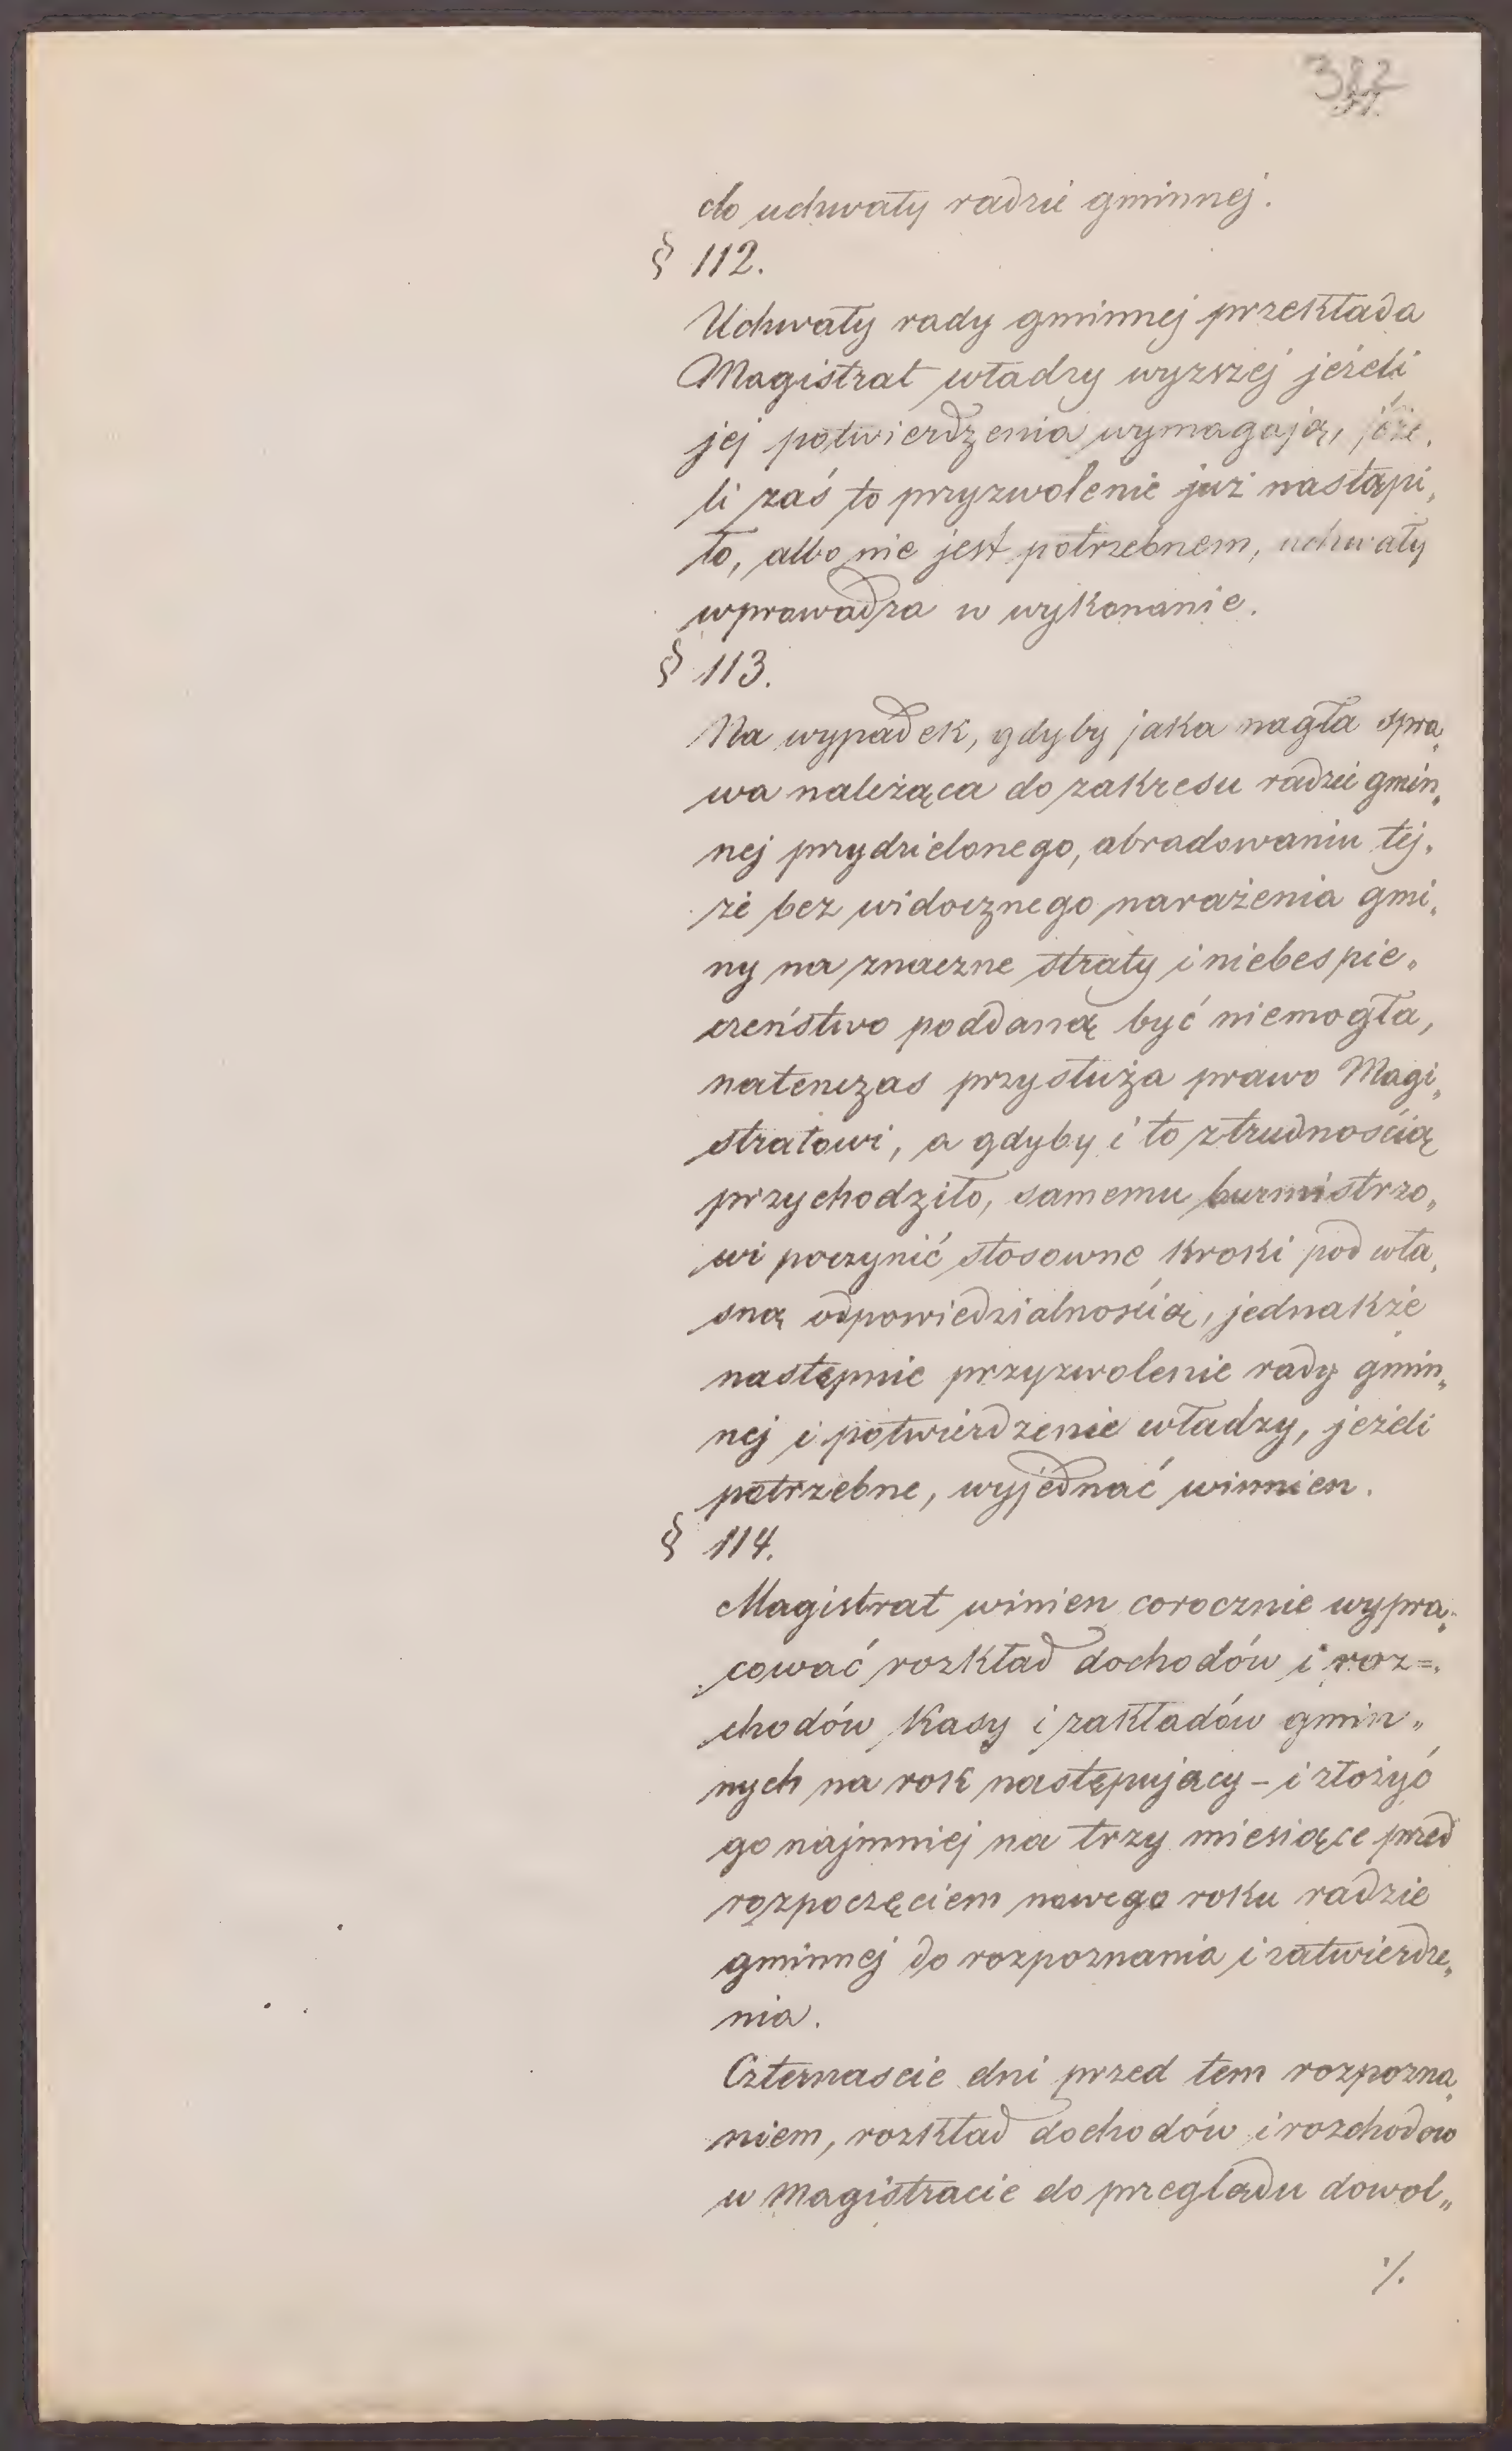 do uchwały radzie gminnej.
§ 112.
Uchwały rady gminnej przekłada
Magistrat władzy wyzszej jeżeli
jej potwierdzenia wymagają, jeże„
li zaś to przyzwolenie już nastąpi„
ło, albo nie jest potrzebnem, uchwały
wprowadza w wykonanie.
§ 113.
Na wypadek, gdyby jaka nagła spra„
wa należąca do zakresu radzie gmin„
nej przydzielonego, obradowaniu tej„
że bez widocznego narażenia gmi„
ny na znaczne straty i niebespie„
czeństwo poddaną być niemogła,
natenczas przysłuża prawo Magi„
stratowi, a gdyby i to z trudnością
przychodziło, samemu burmistrzo„
wi poczynić stosowne kroki pod wła„
sną odpowiedzialnością, jednakże
następnie przyzwolenie rady gmin„
nej i potwierdzenie władzy, jeżeli
potrzebne, wyjednać winnien.
§ 114.
Magistrat winien corocznie wypra„
cować rozkład dochodów i roz=
chodów Kasy i zakładów gmin„
nych na rok następujący – i złożyć
go najmniej na trzy miesiące przed
rozpoczęciem nowego roku radzie
gminnej do rozpoznania i zatwierdze„
nia.
Czternascie dni przed tem rozpozna„
niem, rozkład dochodów i rozchodow
w magistracie do przegladu dowol„
⁒